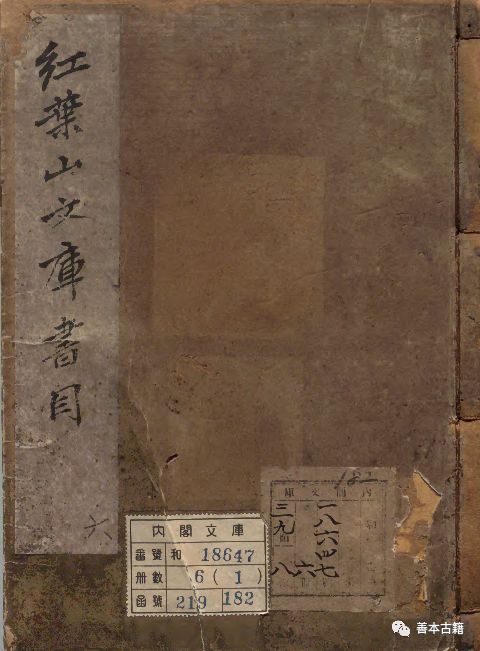 紅葉山文庫書目
六
182
内閣文庫
一八六四七
三九
六
八
内閣文庫
番號 和 18647
册數 6(1)
函號 219 182
善本古籍